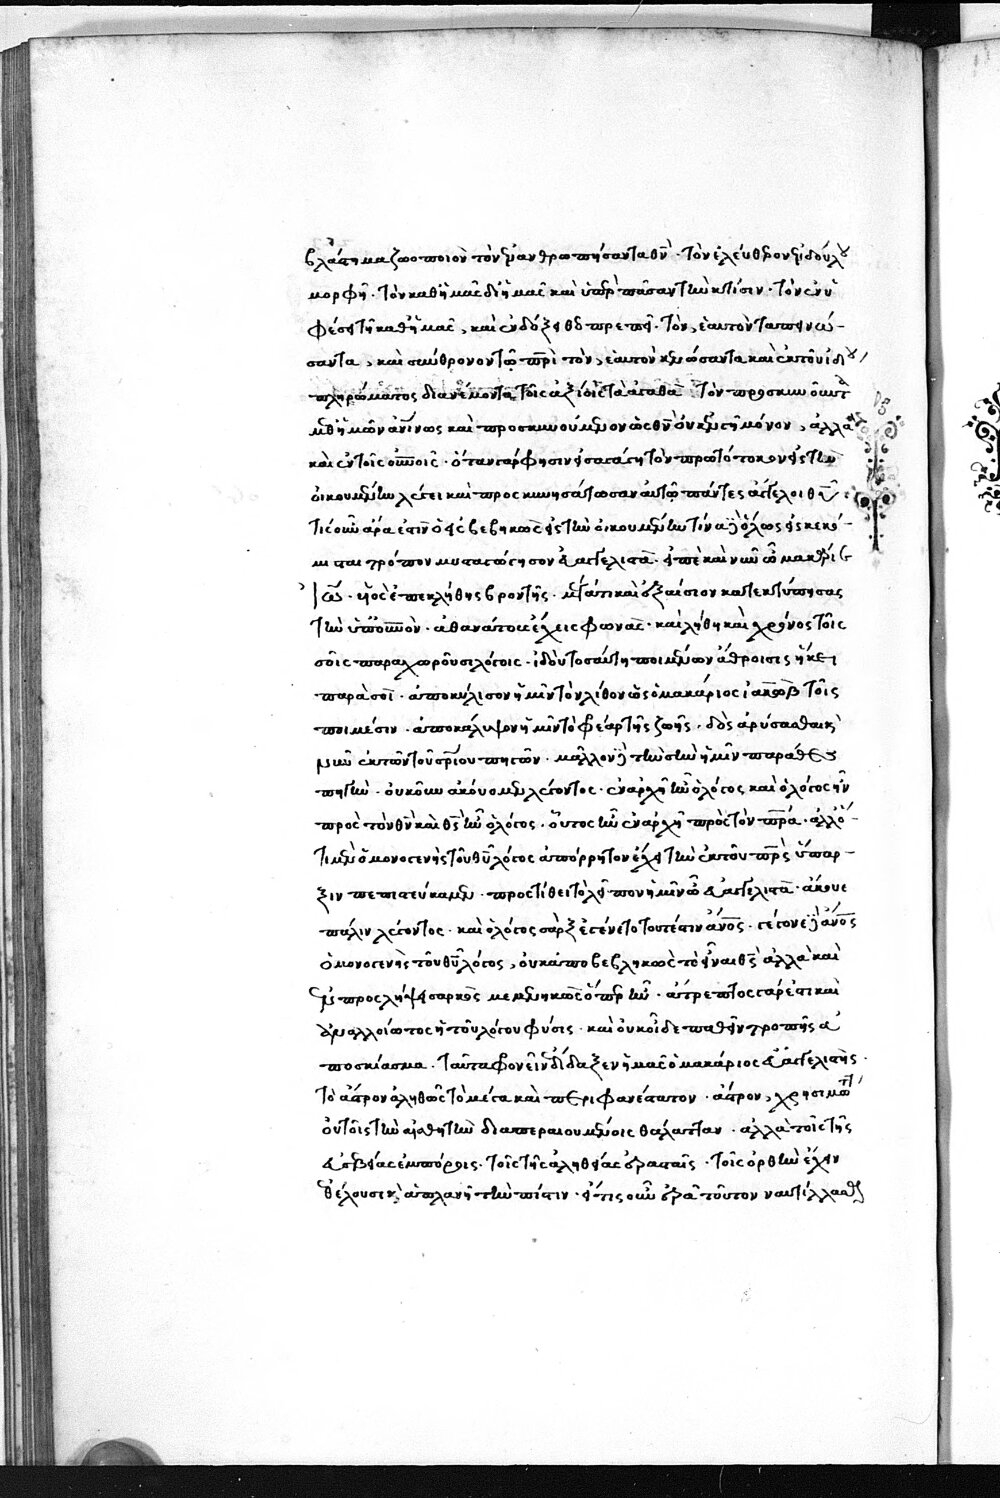 βλάστημα ζωοποιὸν τὸν ἐνανθρωπήσαντα θν̄ · τὸν ἐλεύθερον ἐν δούλου
μορφῆ · τὸν καθ ἡμᾶς δι ἡμᾶς καὶ ὑπὲρ πᾶσαν τὴν κτίσιν · τὸν ἐν ὑ
φέσει τῆ καθ ἡμᾶς, καὶ ἐν δόξη θεοπρεπεῖ · τὸν, ἑαυτὸν ταπεινώ-
σαντα, καὶ σύνθρονον τῶ πρ̄ὶ τὸν, ἑαυτὸν κενώσαντα καὶ ἐκ τοῦ ἰδίου
πληρώματος διανέμοντα τοῖς ἀξίοις τὰ ἀγαθά τὸν προσκυνοῦντα
μεθ ἡμῶν ἀνθρωπίνως καὶ προσκυνούμενον ὡς θν̄ οὐκ ἐν γῆ μόνον, ἀλλὰ
καὶ ἐν τοῖς οὐνοῖς · ὅταν γάρ φησιν εἰσαγάγη τὸν πρωτότοκον εἰς τὴν
οἰκουμένην λέγει καὶ προσκυνησάτωσαν αὐτῶ πάντες ἄγγελοι θῡ ·
τίς οὖν ἄρα ἐστὶν ὁ εἰσβεβηκὼς εἰς τὴν οἰκουμένην τίνα δὲ ὅλως εἰσκεκό-
μισται τρόπον μυσταγώγησον εὐαγγελιστά · εἰπὲ καὶ νῦν ὦ μακάριε
Ἰῶ · υἱὸς ἐπεκλήθης βροντῆς · μέγά τι καὶ ἐξαίσιον κατεκτύπησας
τὴν ὑπ οὐνὸν · ἀθανάτους ἔχεις φωνάς · καὶ λήθη καὶ χρόνος τοῖς
σοῖς παραχωροῦσι λόγοις · ἰδοὺ τοσαύτη ποιμένων ἄθροισις ἥκει
παρὰ σοί · ἀποκύλισον ἡμῖν τὸν λίθον ὡς ὁ μακάριος ἰακὼβ τοῖς
ποιμέσιν · ἀποκάλυψον ἡμῖν τὸ φρέαρ τῆς ζωῆς · δὸς ἀρύσασθαι καὶ
νῦν ἐκ τῶν τοῦ σρίου πηγῶν · μᾶλλον δὲ τὴν σὴν ἡμῖν παράθες
πηγήν · οὐκοῦν ἀκούομεν λέγοντος · ἐν ἀρχῆ ἦν ὁ λόγος καὶ ὁ λόγος ἦν
πρὸς τὸν θν̄ καὶ θς̄ ἦν ὁ λόγος · οὗτος ἦν ἐν ἀρχῆ πρὸς τὸν πρ̄α · ἀλλ ὅ-
τι μὲν ὁ μονογενὴς τοῦ θῡ λόγος ἀπόρρητον ἔχει τὴν ἐκ τοῦ πρς̄ ὕπαρ-
ξιν πεπιστεύκαμεν · προστίθει τὸ λεῖπον ἡμῖν ὦ εὐαγγελιστά · ἄκουε
πάλιν λέγοντος · καὶ ὁ λόγος σὰρξ ἐγένετο τουτέστιν ἄνος · γέγονε δὲ ἄνος
ὁ μονογενὴς τοῦ θῡ λόγος, οὐκ ἀποβεβληκὼς τὸ εἶναι θς̄ ἀλλὰ καὶ
ἐν προσλήψει σαρκὸς μεμενηκὼς ὅπερ ἦν · ἄτρεπτος γάρ ἐστι καὶ
ἀναλλοίωτος ἡ τοῦ λόγου φύσις · καὶ οὐκ οἶδε παθεῖν τροπῆς ἀ
ποσκίασμα · ταῦτα φρονεῖν ἐδίδαξεν ἡμᾶς ὁ μακάριος εὐαγγελιστὴς ·
τὸ ἄστρον ἀληθῶς τὸ μέγα καὶ περιφανέστατον · ἄστρον, χρήσιμον
οὐ τοῖς τὴν αἰσθητὴν διαπεραιουμένοις θάλατταν · ἀλλὰ τοῖς τῆς
εὐσεβείας ἐμπόροις · τοῖς τῆς ἀληθείας ἐρασταῖς · τοῖς ὀρθὴν ἔχειν
θέλουσιν καὶ ἀπλανῆ τὴν πίστιν · εἴ τις οὖν ἐρᾶ τοῦτον ναυτίλλεσθαι